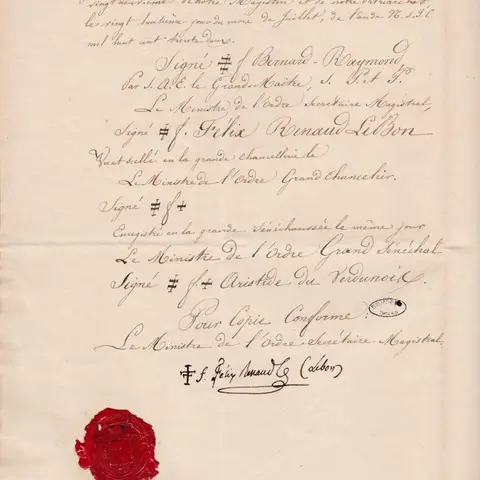 vingt neuvième de notre Magistère et de notre patriarchat
le vingt huitième jour du mois de Juillet, de l'an de N. S. J. C.
mil huit cent trente deux.
Signé ‡ f Bernard-Raymond,
Par S. A. E. le Grand-Maître, S. P. et P.
Le Ministre de l'Ordre Secrétaire Magistral,
Signé ‡ f. Félix Renaud LeBon
Vu et scellé en la grande chancellerie le
Le Ministre de l'Ordre Grand Chancelier.
Signé ‡ f +
Enregistré en la grande Sénéchaussée le même jour
Le Ministre de l'Ordre Grand Sénéchal
Signé ‡ f + Aristide du Verdunoix.
Pour Copie Conforme:
Le Ministre de l'Ordre Secrétaire Magistral.
‡ f. Félix Renaud (Lebon)